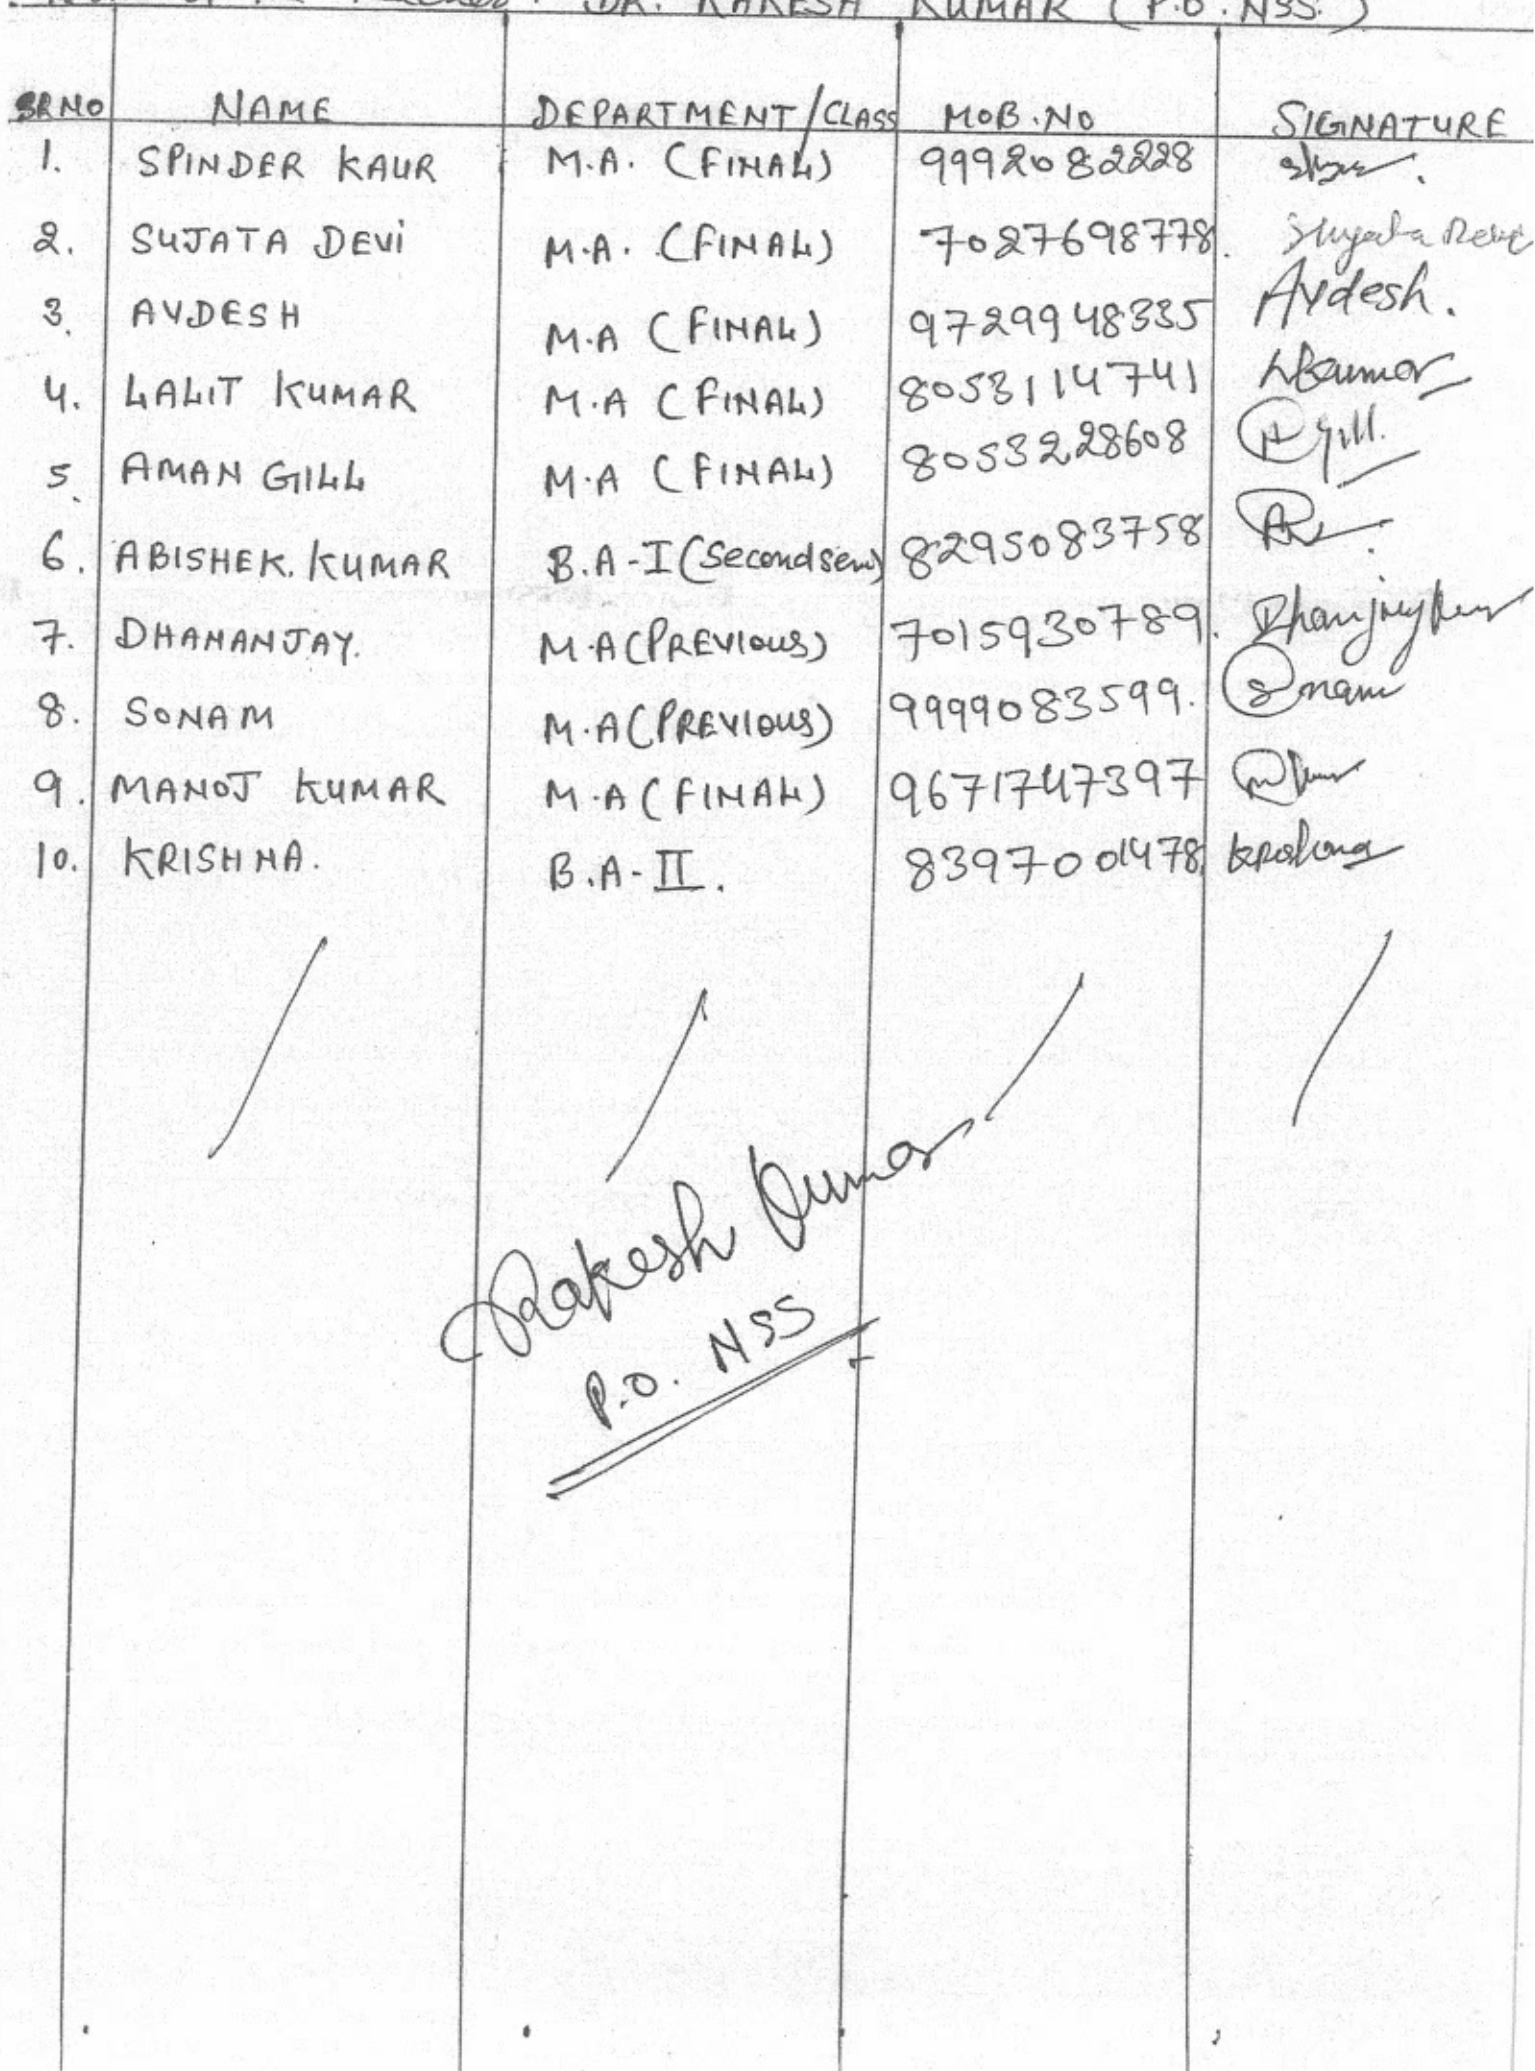 DR. RAKESH KUMAR (P.O. NSS.)
SR NO NAME DEPARTMENT/CLASS MOB.NO SIGNATURE
1. SPINDER KAUR M.A. (FINAL) 9992082228
2. SUJATA DEVI M.A. (FINAL) 7027698778. Sujata Devi
3. AVDESH M.A (FINAL) 9729948335 Avdesh.
4. LALIT KUMAR M.A (FINAL) 8053114741 LKumar
5. AMAN GILL M.A (FINAL) 8053228608 A gill.
6. ABISHEK. KUMAR B.A-I (Second sem) 8295083758
7. DHANANJAY. M.A (PREVIOUS) 7015930789.
8. SONAM M.A (PREVIOUS) 9999083599. Sonam
9. MANOJ KUMAR M.A (FINAL) 9671747397
10. KRISHNA. B.A-II. 8397001478 Krishna
Rakesh Kumar
P.O. NSS